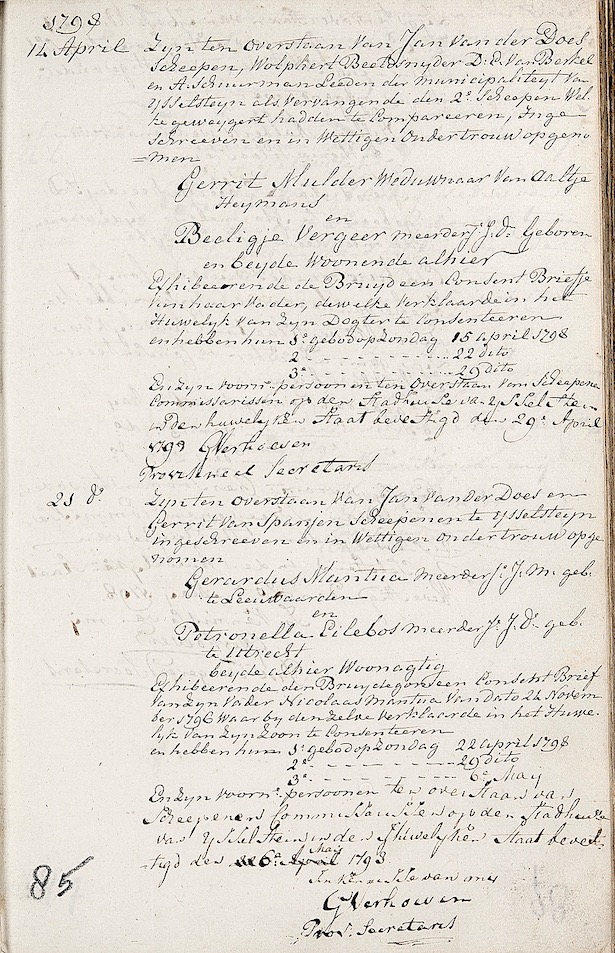 1798
14 April Zyn ten overstaan van Jan van der Does
Scheepen, Wolphert Beeldsnyder D: C: van Berkel
en A. Schuurman Leeden der Municipaliteyt van
ysselsteyn als vervangende den 2e. Scheepen wel-
ke geweygert hadden te Compareeren, Inge
schreeven en in Wettigen Ondertrouw opgeno
=men
Gerrit Mulder Weduwnaar van Aaltje
Heymans
en
Beeligje Vergeer meerderj: J.D: Geboren
en beyde Woonende alhier
Exhibeerende de Bruyd een Consent Briefje
van haar Vader, dewelke verklaarde in het
Huwelyk van zyn Dogter te Consenteeren
en hebben hun 1e. gebod op zondag 15 april 1798
2 - - - - - - - - - - 22 dito
3e. - - - - - - - - - - 29 dito
En zyn voorn: persoonen ten overstaan van Scheepene
Commissarissen op den Stadhuise van ysselstein
in den huwelyken Staat bevestigd den 29e. April
1798 GVerhoeven
Provisioneel Secretaris
21 do. Zyn ten overstaan van Jan van der Does en
Gerrit van Spanjen Scheepenen te ysselsteyn
ingeschreeven en in Wettigen ondertrouw opge
nomen
Gerardus Mantua meerderj: J: M: geb:
te Leeuwaarden
en
Petronella Eilebos meerderj: J: D: geb:
te Utrecht
beyde alhier Woonagtig
Exhibeerende den Bruydegom een Consent Brief
van zyn Vader Nicolaas Mantua van dato 24 Novem
ber 1796 Waar by den zelve verklaarde in het Huwe-
lyk van zyn Zoon te Consenteeren
en hebben hun 1e. gebod op zondag 22 april 1798
2e. - - - - - - - - - - 29 dito
3e. - - - - - - - - - - 6e. May
En zyn voorn: persoonen ten overstaan van
Scheepenen Commissarissen op den Stadhuise
van ysselstein in den Huwelyken Staat bevest-
tigd den 6e. April May 1798
In kennisse van my
GVerhoeven
Prov: Secretaris
85